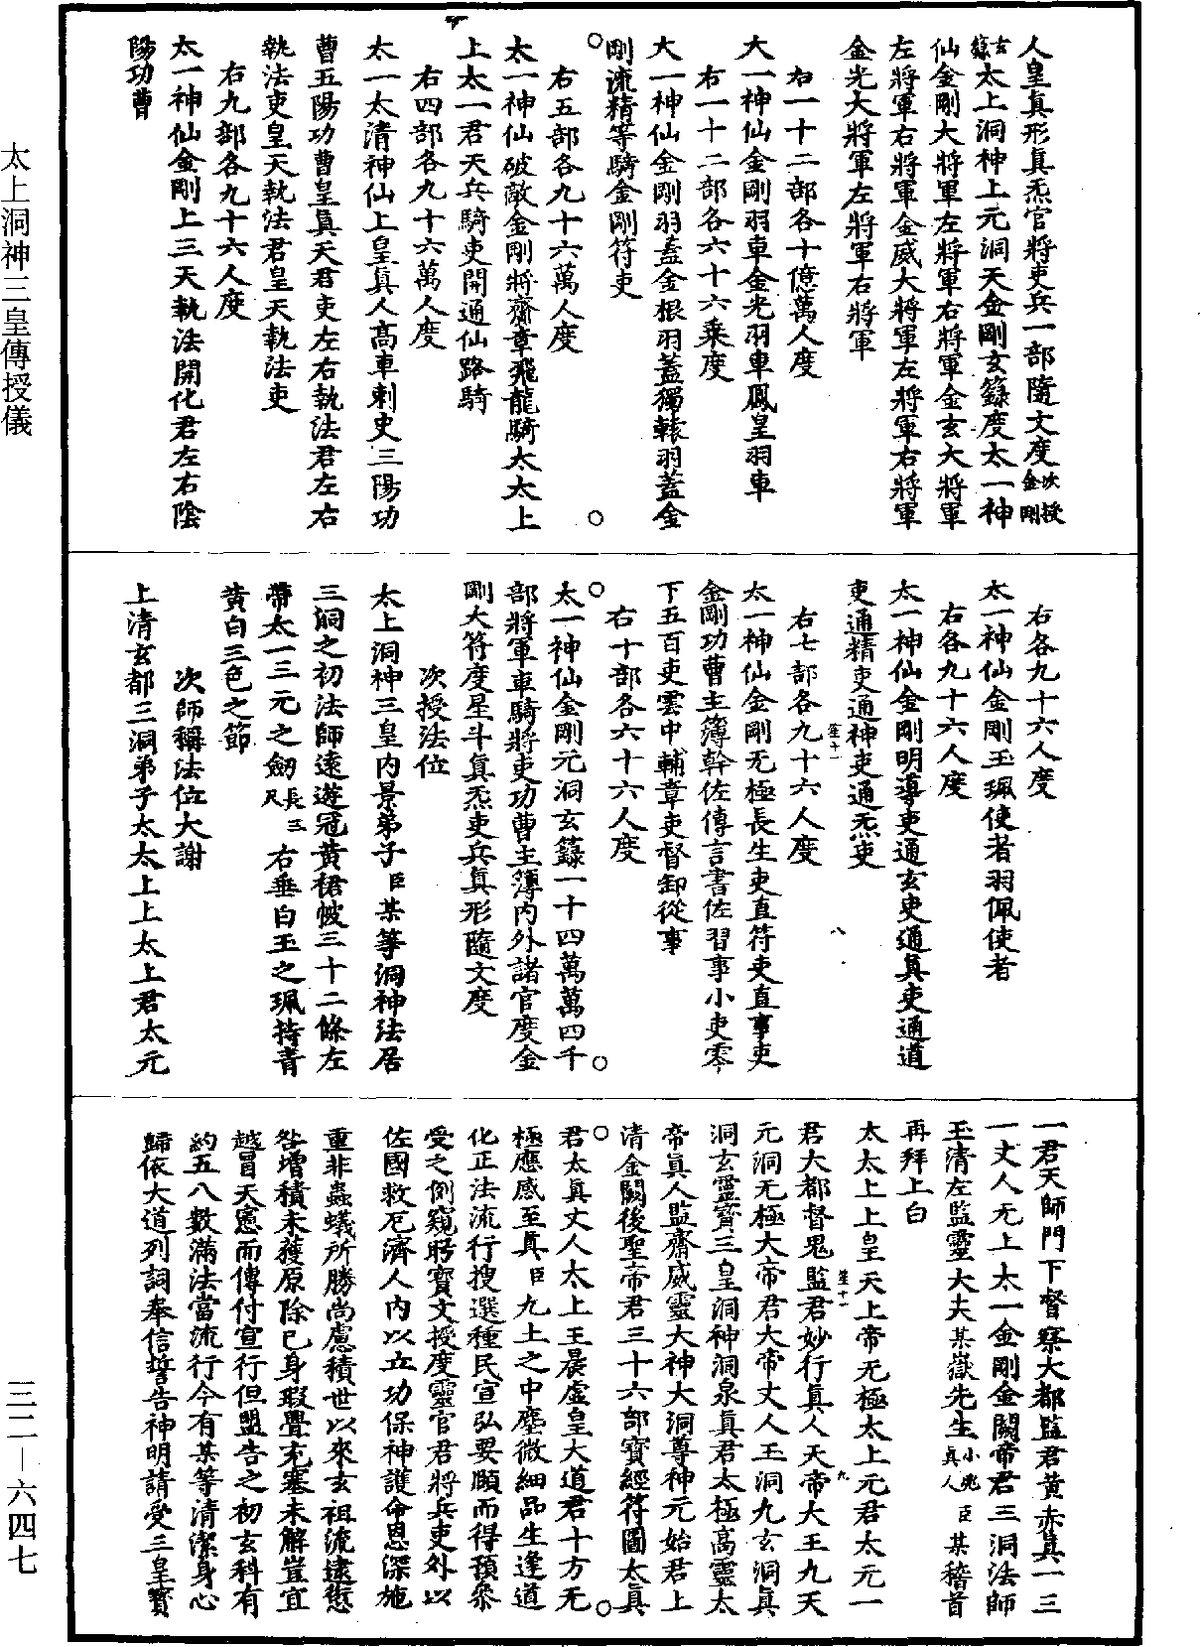 太上洞神三皇傳授儀
人皇眞形眞炁官將吏兵一部隨文度次授金剛
玄籙太上洞神上元洞天金剛玄籙度太一神
仙金剛大將軍左將軍右將軍金玄大將軍
左將軍右將軍金威大將軍左將軍右將軍
金光大將軍左將軍右將軍
右一十二部各十億萬人度
大一神仙金剛羽車金光羽車鳳皇羽車
右一十二部各六十六乘度
大一神仙金剛羽蓋金根羽蓋獨轅羽蓋金
剛流精等騎金剛符吏
右五部各九十六萬人度
太一神仙破敵金剛將齋章飛龍騎太太上
上太一君天兵騎吏開通仙路騎
右四部各九十六萬人度
太一太清神仙上皇眞人高車刺史三陽功
曹五陽功曹皇眞天君吏左右執法君左右
執法吏皇天執法君皇天執法吏
右九部各九十六人度
太一神仙金剛上三天執法開化君左右陰
陽功曹
右各九十六人度
太一神仙金剛玉珮使者羽佩使者
右各九十六人度
太一神仙金剛明導吏通玄吏通眞吏通道
吏通精吏通神吏通炁吏
右七部各九十六人度
太一神仙金剛无極長生吏直符吏直事吏
金剛功曹主簿幹佐傳言書佐習事小吏零
下五百吏雲中輔章吏督卸從事
右十部各六十六人度
太一神仙金剛元洞玄籙一十四萬萬四千
部將軍車騎將吏功曹主簿內外諸官度金
剛大符度星斗眞炁吏兵眞形隨文度
次授法位
太上洞神三皇內景弟子臣某等洞神法居
三洞之初法師遠遊冠黃裙帔三十二條左
帶太一三元之劒長三尺右垂白玉之珮持青
黃白三色之節
次師稱法位大謝
上清玄都三洞弟子太太上上太上君太元
一君天師門下督察大都監君黃赤眞一三
一丈人无上太一金剛金闕帝君三洞法師
玉清左監靈大夫某嶽先生小兆眞人臣某稽首
再拜上白
太太上上皇天上帝无極太上元君太元一
君大都督鬼監君妙行眞人天帝大王九天
元洞无極大帝君大帝丈人玉洞九玄洞眞
洞玄靈寶三皇洞神洞泉眞君太極高靈太
帝眞人監齋威靈大神大洞尊神元始君上
清金闕後聖帝君三十六部寶經符圖太眞
君太眞丈人太上玉晨虛皇大道君十方无
極應感至眞臣九土之中塵微細品生逢道
化正法流行搜選種民宣弘要願而得預叅
受之例窺眄寶文授度靈官君將兵吏外以
佐國救厄濟人內以立功保神護命恩深施
重非蟲蟻所勝尚慮積世以來玄祖流逮愆
咎增積未獲原除已身瑕舋充塞未解豈宜
越冒天憲而傳付宣行但盟告之初玄科有
約五八數滿法當流行今有某等清潔身心
歸依大道列詞奉信誓告神明請受三皇寶
三二－六四七